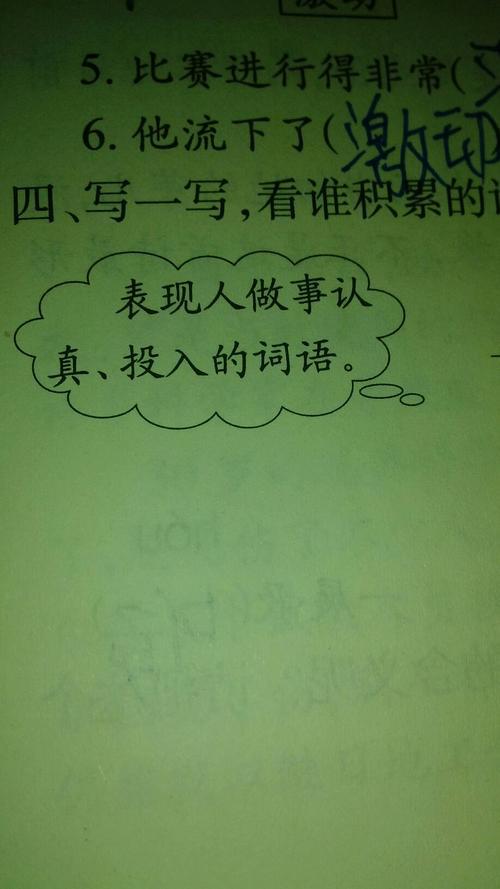 激动
5. 比赛进行得非常(
6. 他流下了(激动)
四、写一写,看谁积累的
表现人做事认
真、投入的词语。